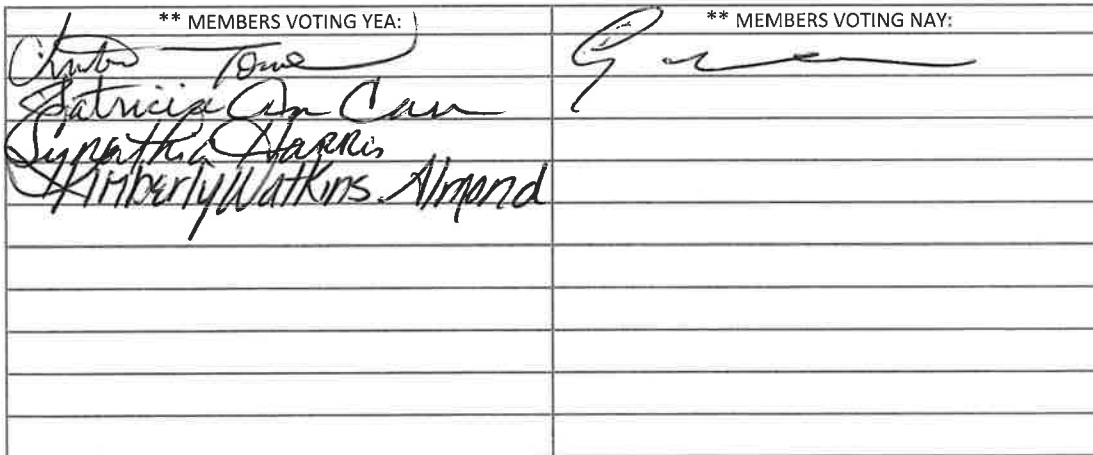 ** MEMBERS VOTING YEA:
** MEMBERS VOTING NAY:
Patricia Ann Carr
Synathia Harris
Kimberly Watkins-Almond